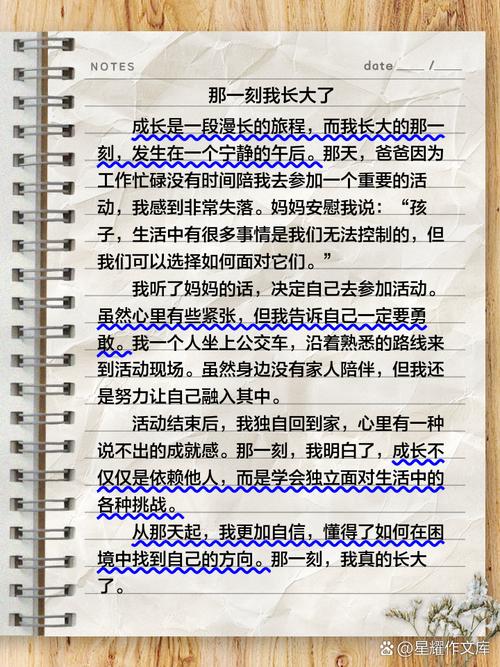 NOTES
date ____ / ____
那一刻我长大了
成长是一段漫长的旅程，而我长大的那一
刻，发生在一个宁静的午后。那天，爸爸因为
工作忙碌没有时间陪我去参加一个重要的活
动，我感到非常失落。妈妈安慰我说：“孩
子，生活中有很多事情是我们无法控制的，但
我们可以选择如何面对它们。”
我听了妈妈的话，决定自己去参加活动。
虽然心里有些紧张，但我告诉自己一定要勇
敢。我一个人坐上公交车，沿着熟悉的路线来
到活动现场。虽然身边没有家人陪伴，但我还
是努力让自己融入其中。
活动结束后，我独自回到家，心里有一种
说不出的成就感。那一刻，我明白了，成长不
仅仅是依赖他人，而是学会独立面对生活中的
各种挑战。
从那天起，我更加自信，懂得了如何在困
境中找到自己的方向。那一刻，我真的长大
了。
@星耀作文库